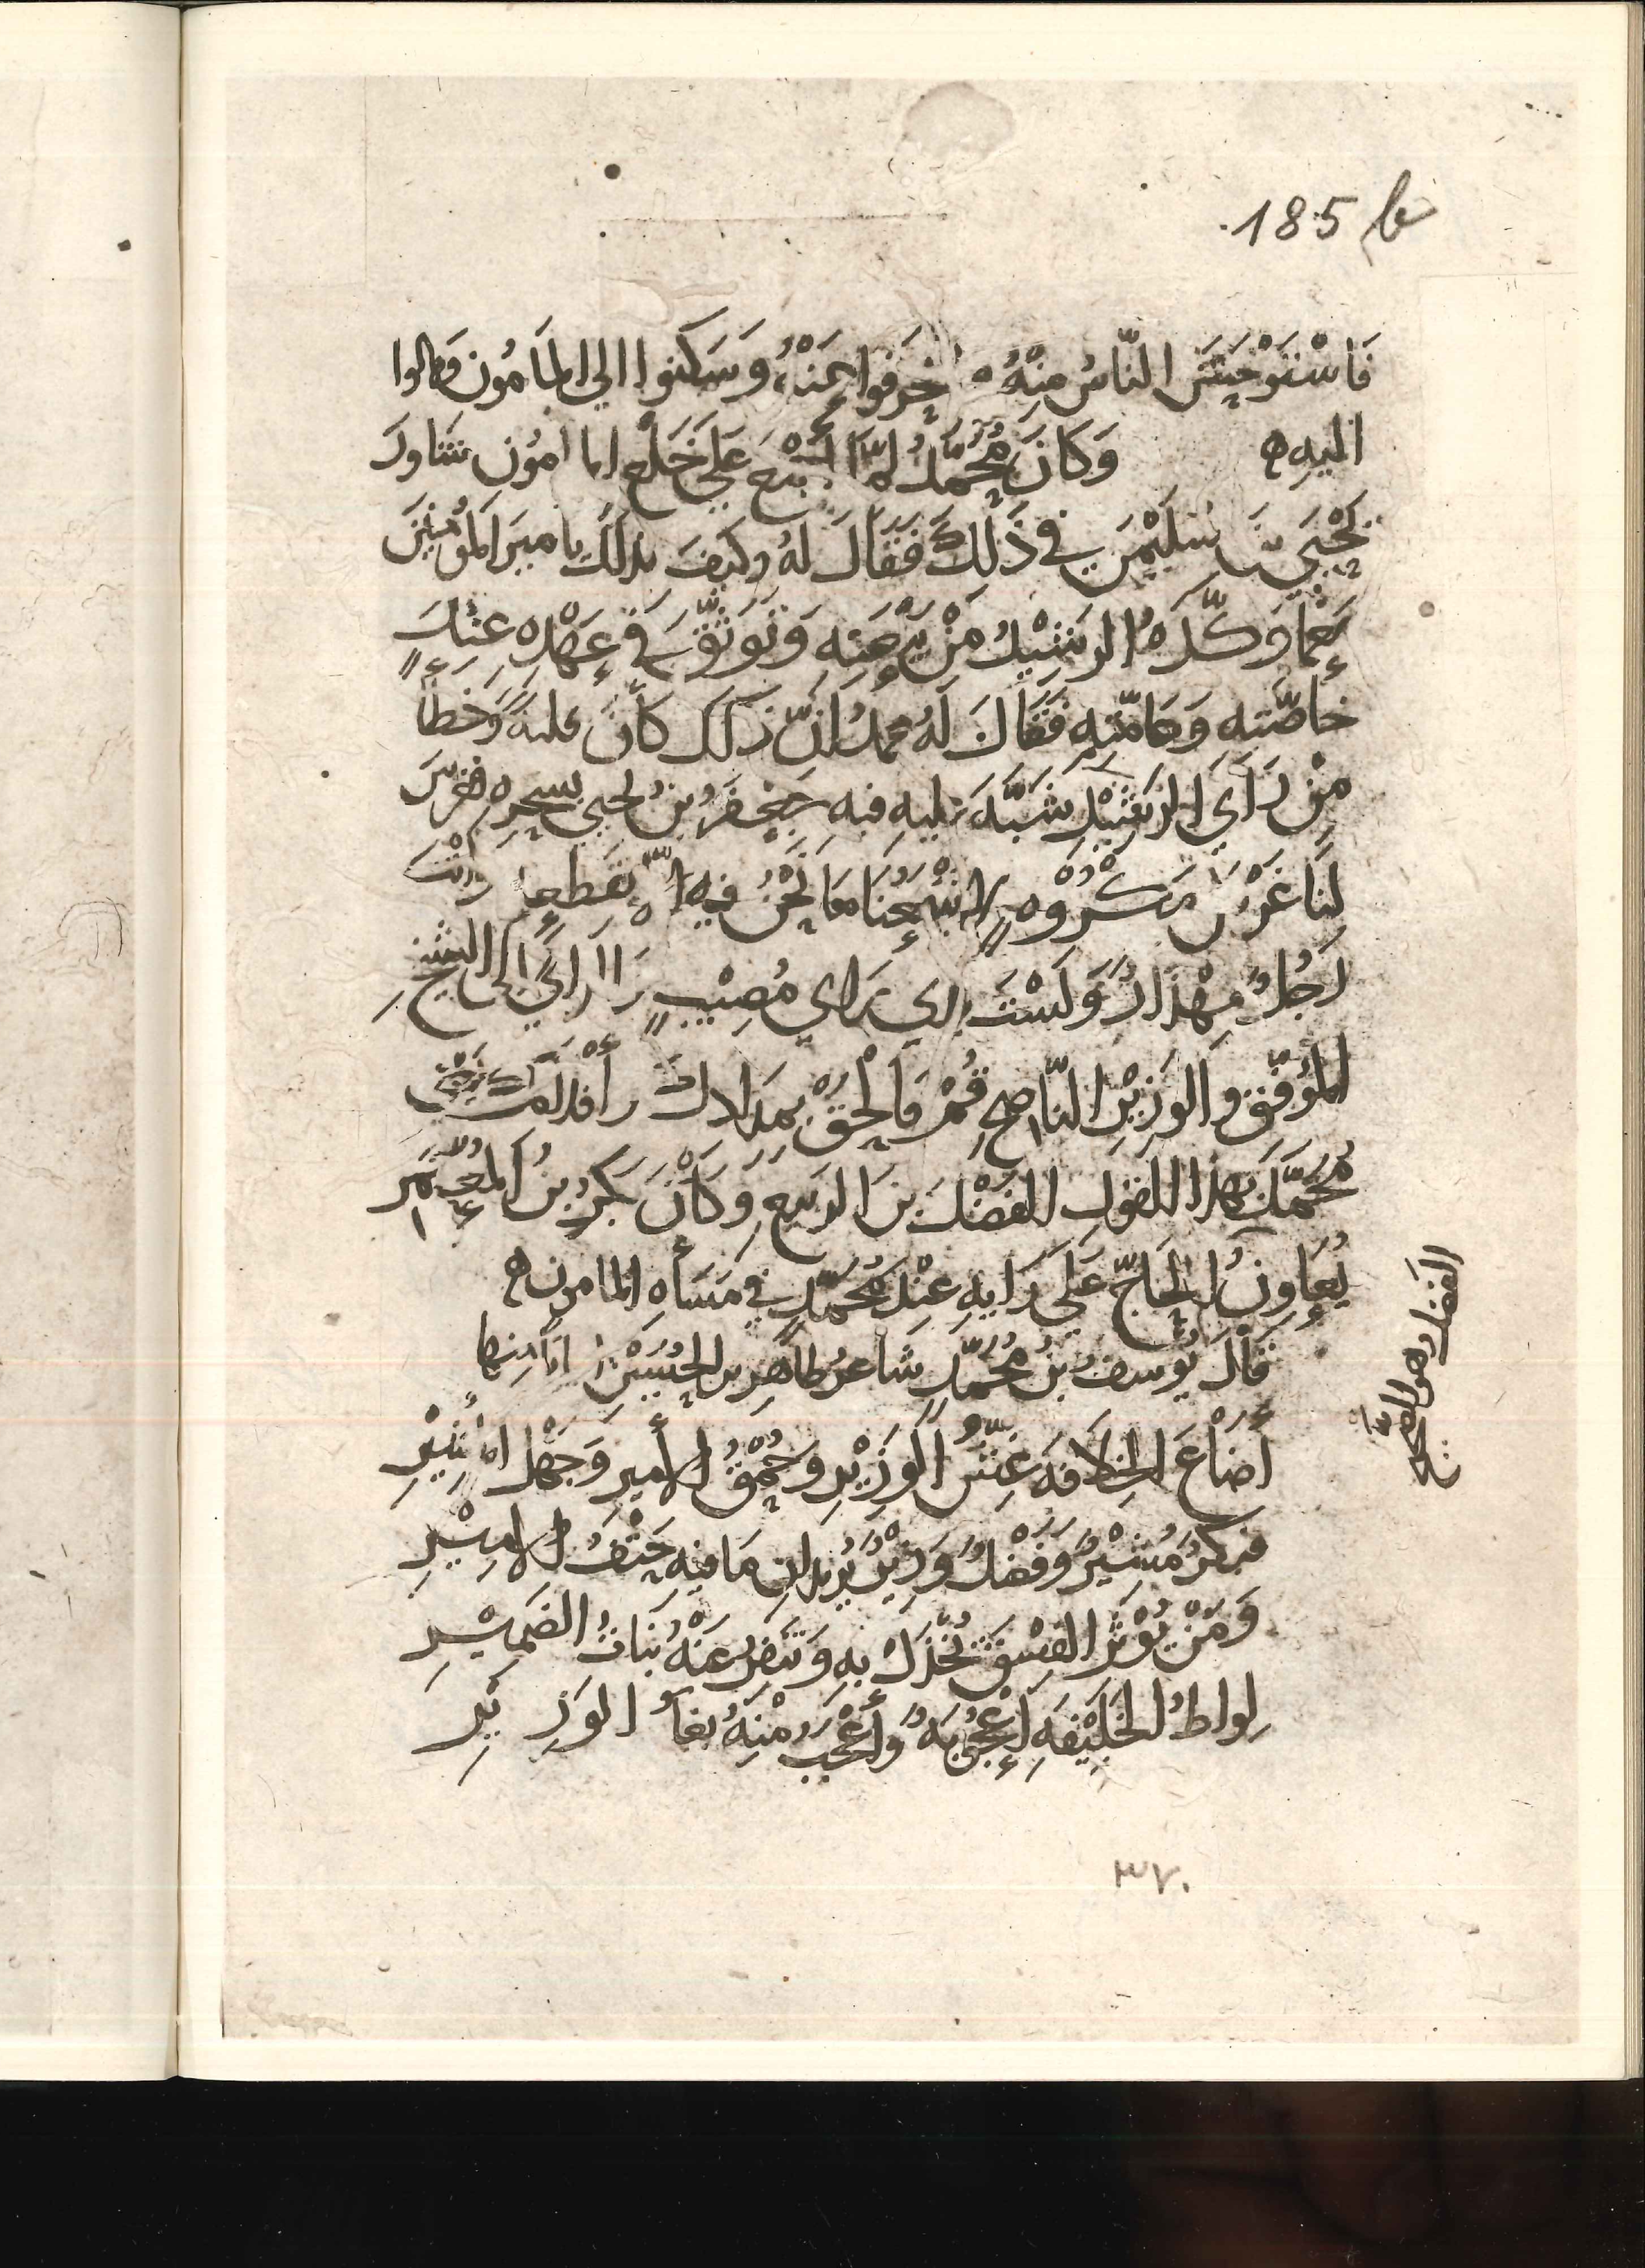 185
فَاسْتَوْحَشَ النَّاسُ مِنْهُ وانْحَرفوا عَنْهُ وَسَكنوا الي المَامُون ومالوا
اليهِ ه وَكانَ مُحَمّدُ لمّا أجْمَعَ عَلي خَلْعِ المامُون شَاورَ
يَحْيَي بنَ سُلَيْمَنَ في ذَلكَ فَقَالَ لهُ وكيفَ بذلكَ يا ميرَ المُؤمنينَ
مَعْمَا وَكّدهُ الرشِيْدُ مِنْ بَيْعَتِهِ وَتَوَثَّقَ في عَهْدِهِ عِنْدَ
خاصّتهِ وَعامّتِهِ فَقَالَ لهُ محمدُ انّ ذلكَ كانَ فلتةً وَخطأً
مِنْ رَاَي الرَشِيْدِ شَبَّهَ عَليهِ فيهِ جَعْفَرُ بنُ يحيي بسِحْرِهِ فغَرَسَ
لنَا غَرْسَ مَكْرُوْهٍ لا يَنْفَعُنَا مَا نَحْنُ فيهِ الّا بقطعهِ وانْتَ
رَجُلٌ مِهْذَارٌ وَلَسْتَ بذي رَاي مُصِيْبٍ وَالرايُ الي الشَيْخِ
المُوَفّق وَالوَزِيْرِ النّاصِحِ قُمْ فَالْحَقْ بمِدَادِكَ وأقْلامكَ يَعْنِي
مُحَمَّدٌ بهذا القولِ الفَضْلَ بنَ الربيعِ وَكانَ بَكرُ بنُ المُعْتَمِر
يُعَاونُ الحَاجّ عَلي رَايهِ عِنْدَ مُحَمّدٍ في مَسْأَلَهِ المامون ه
قَالَ يُوسفُ بنُ مُحَمّدٍ شَاعِرُ طاهِر بن الحُسَيْن ابْيَاتًا منها
أضَاعَ الخِلافَهَ غِشُّ الوَزِيْرِ وحُمْقُ الأميرِ وَجَهْلُ المُشِيْرِ
فبكرٌ مُشِيْرٌ وَفَضْلٌ وَزِيْرٌ يُريْدانِ مَا فيهِ حَتْفُ الامِيْرِ
وَمَنْ يُوْثرِ الفِسْقَ يُخْذَلْ بهِ وَتنفر عَنْهُ بَنَاتُ الضَمِيْرِ
لِواطُ الخَلِيْفَهِ اُعْجُوبَهٌ وَأعْجَبُ مْنِهُ بغآ الوَزِيْرِ
الفضل وهو الصّحيح
٣٧٠